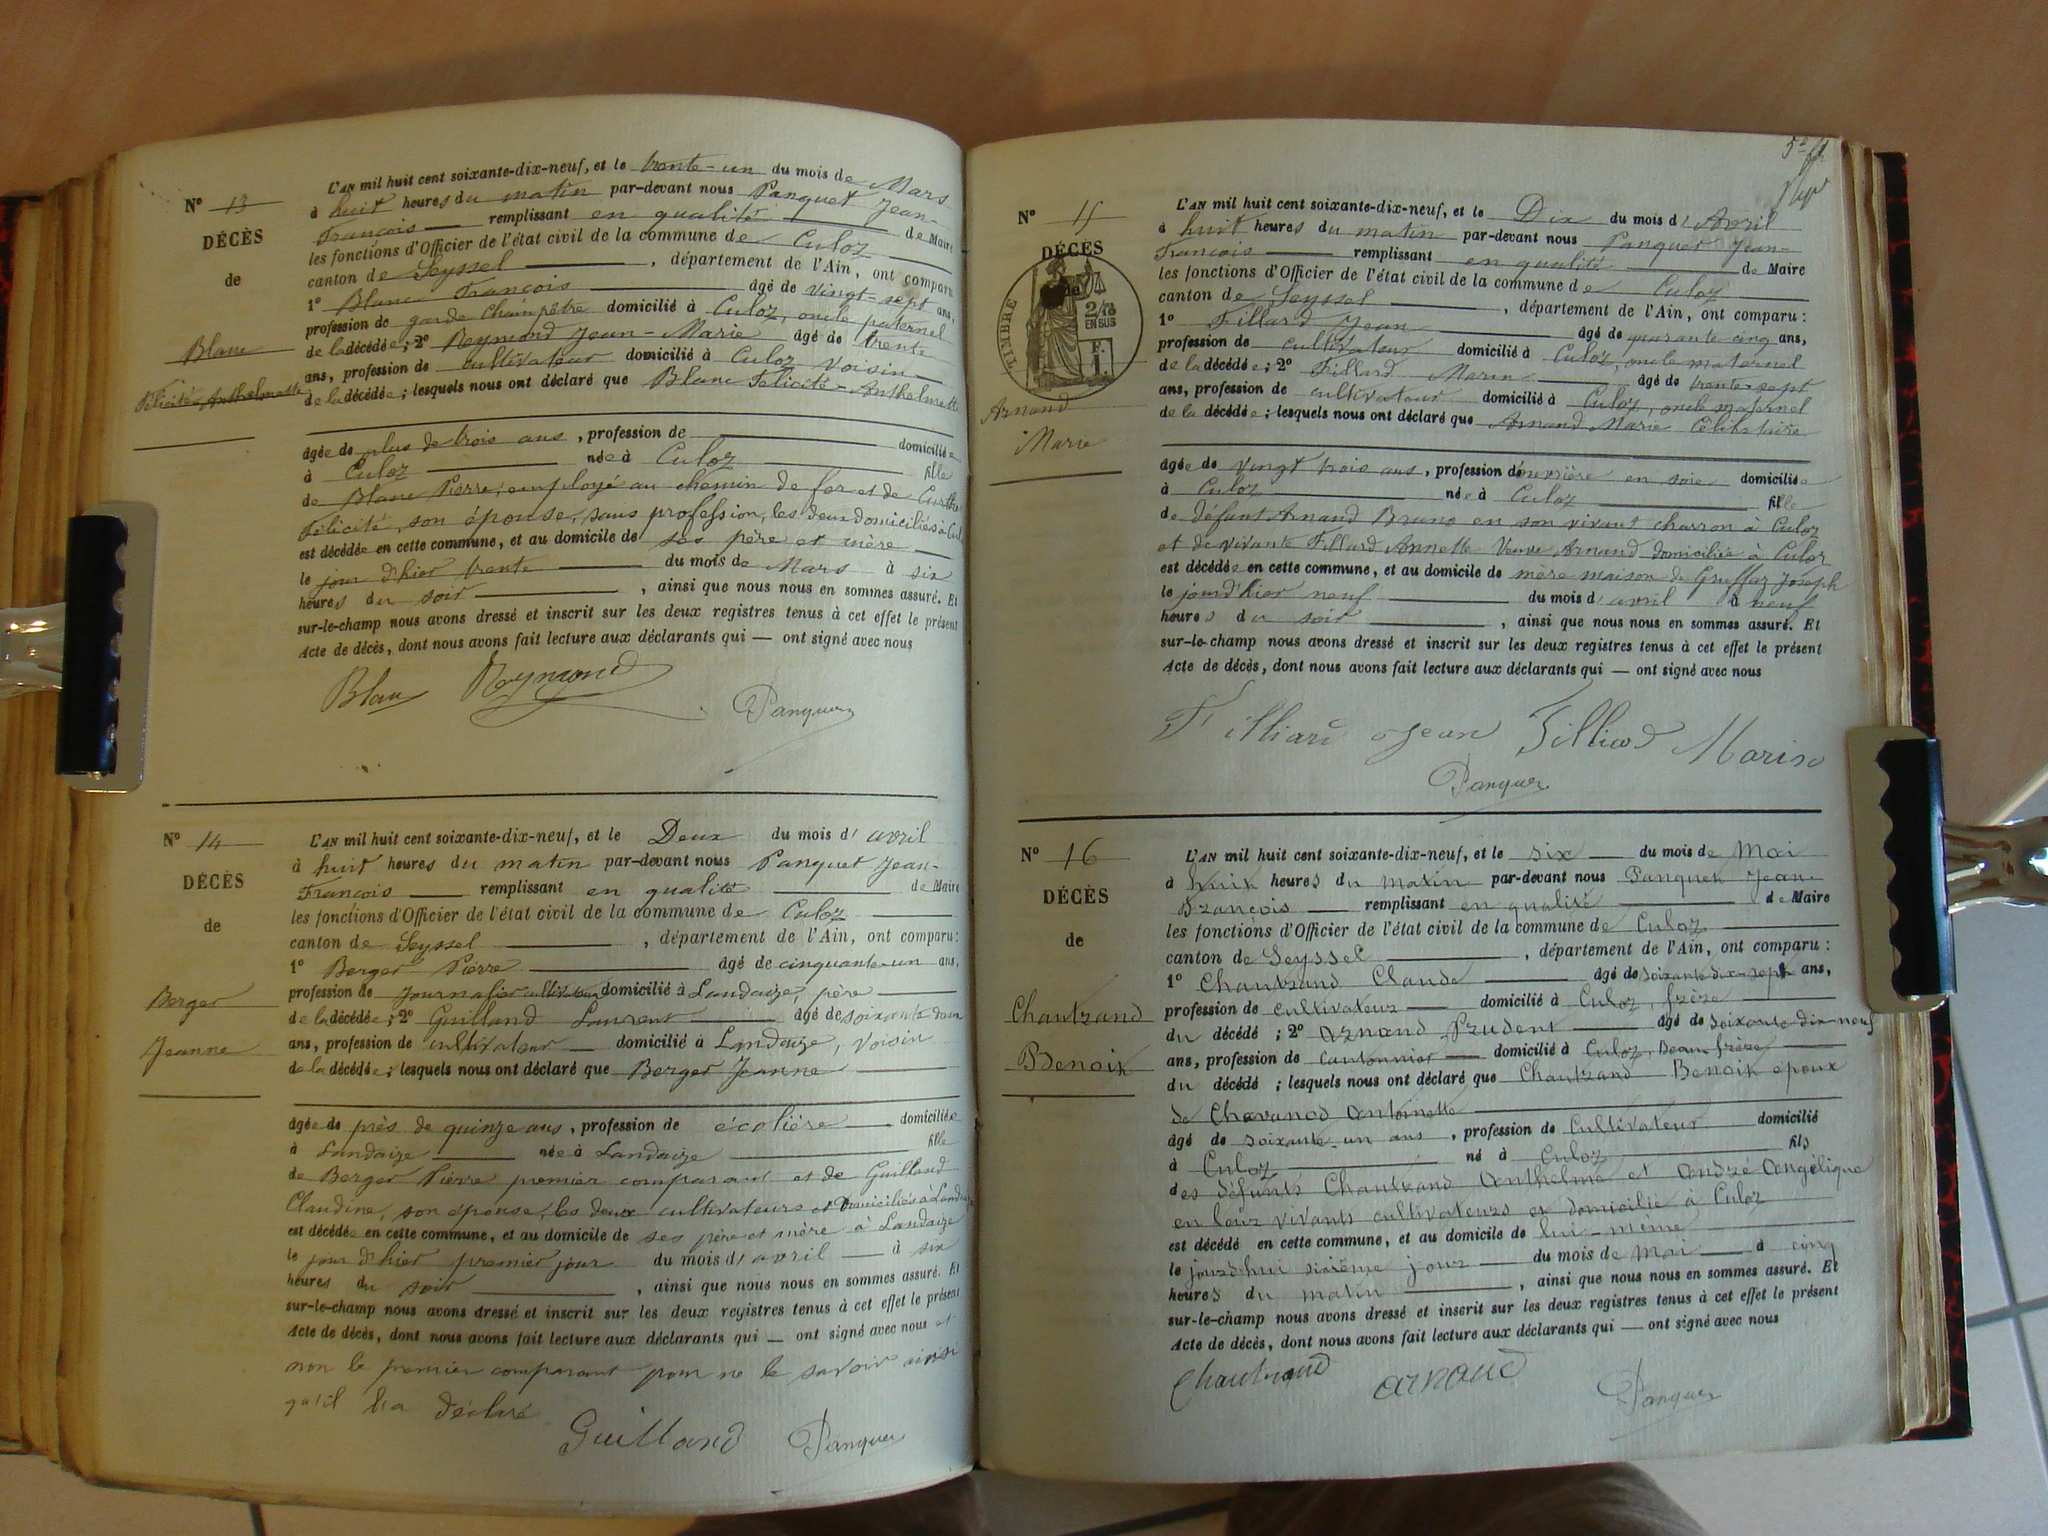 N° 13
DÉCÈS
de
Blanc
Félicité Anthelmette
L'AN mil huit cent soixante-dix-neuf, et le trente-un du mois de Mars
à huit heures du matin par-devant nous Panquet Jean-
François remplissant en qualité de Maire
les fonctions d'Officier de l'état civil de la commune de Culoz
canton de Seyssel, département de l'Ain, ont comparu
1° Blanc François âgé de vingt-sept ans,
profession de garde champêtre domicilié à Culoz, oncle paternel
de la décédée; 2° Reymond Jean-Marie âgé de trente
ans, profession de cultivateur domicilié à Culoz voisin
de la décédée; lesquels nous ont déclaré que Blanc Félicité-Anthelmette
âgée de plus de trois ans, profession de domiciliée
à Culoz née à Culoz fille
de Blanc Pierre, employé au chemin de fer et de
Félicité, son épouse, sans profession, les deux domiciliés à Culoz
est décédée en cette commune, et au domicile de ses père et mère
le jour d'hier trente du mois de Mars à six
heures du soir, ainsi que nous nous en sommes assuré. Et
sur-le-champ nous avons dressé et inscrit sur les deux registres tenus à cet effet le présent
Acte de décès, dont nous avons fait lecture aux déclarants qui — ont signé avec nous
Blanc Reymond Panquet
N° 14
DÉCÈS
de
Berger
Jeanne
L'AN mil huit cent soixante-dix-neuf, et le Deux du mois d'avril
à huit heures du matin par-devant nous Panquet Jean-
François remplissant en qualité de Maire
les fonctions d'Officier de l'état civil de la commune de Culoz
canton de Seyssel, département de l'Ain, ont comparu:
1° Berger Pierre âgé de cinquante-un ans,
profession de Journalier cultivateur domicilié à Landaize, père
de la décédée; 2° Guilland Laurent âgé de soixante deux
ans, profession de cultivateur domicilié à Landaize, voisin
de la décédée; lesquels nous ont déclaré que Berger Jeanne
âgée de près de quinze ans, profession de écolière domiciliée
à Landaize née à Landaize fille
de Berger Pierre premier comparant et de Guilland
Claudine, son épouse, les deux cultivateurs et domiciliés à Landaize
est décédée en cette commune, et au domicile de ses père et mère à Landaize
le jour d'hier premier jour du mois d'avril à six
heures du soir, ainsi que nous nous en sommes assuré. Et
sur-le-champ nous avons dressé et inscrit sur les deux registres tenus à cet effet le présent
Acte de décès, dont nous avons fait lecture aux déclarants qui — ont signé avec nous et
non le premier comparant pour ne le savoir ainsi
qu'il l'a déclaré
Guilland Panquet
N° 15
DÉCÈS
TIMBRE
2/10
EN SUS
F.
1.
Arnand
Marie
L'AN mil huit cent soixante-dix-neuf, et le Dix du mois d'Avril
à huit heures du matin par-devant nous Panquet Jean-
François remplissant en qualité de Maire
les fonctions d'Officier de l'état civil de la commune de Culoz
canton de Seyssel, département de l'Ain, ont comparu:
1° Fillard Jean âgé de quarante cinq ans,
profession de cultivateur domicilié à Culoz, oncle maternel
de la décédée; 2° Fillard Marin âgé de trente-sept
ans, profession de cultivateur domicilié à Culoz, oncle maternel
de la décédée; lesquels nous ont déclaré que Arnand Marie Célibataire
âgée de vingt trois ans, profession d'ouvrière en soie domiciliée
à Culoz née à Culoz fille
de défunt Arnand Bruno en son vivant charron à Culoz
et de vivante Fillard Annette Veuve Arnand domiciliée à Culoz
est décédée en cette commune, et au domicile de mère maison de Gruffaz Joseph
le jour d'hier neuf du mois d'avril à neuf
heures du soir, ainsi que nous nous en sommes assuré. Et
sur-le-champ nous avons dressé et inscrit sur les deux registres tenus à cet effet le présent
Acte de décès, dont nous avons fait lecture aux déclarants qui — ont signé avec nous
Filliard Jean Filliard Marin
Panquet
N° 16
DÉCÈS
de
Chautrand
Benoit
L'AN mil huit cent soixante-dix-neuf, et le six du mois de Mai
à huit heures du matin par-devant nous Panquet Jean
François remplissant en qualité de Maire
les fonctions d'Officier de l'état civil de la commune de Culoz
canton de Seyssel, département de l'Ain, ont comparu:
1° Chautrand Claude âgé de soixante dix-sept ans,
profession de cultivateur domicilié à Culoz, frère
du décédé; 2° Arnand Prudent âgé de soixante dix-neuf
ans, profession de cantonnier domicilié à Culoz, Beau-frère
du décédé; lesquels nous ont déclaré que Chautrand Benoit époux
de Chavanod Antoinette
âgé de soixante-un ans, profession de Cultivateur domicilié
à Culoz né à Culoz fils
des défunts Chautrand Anthelme et André Angélique
en leur vivants cultivateurs et domicilié à Culoz
est décédé en cette commune, et au domicile de lui-même
le jourd'hui sixième jour du mois de Mai à cinq
heures du matin, ainsi que nous nous en sommes assuré. Et
sur-le-champ nous avons dressé et inscrit sur les deux registres tenus à cet effet le présent
Acte de décès, dont nous avons fait lecture aux déclarants qui — ont signé avec nous
Chautrand Arnaud Panquet